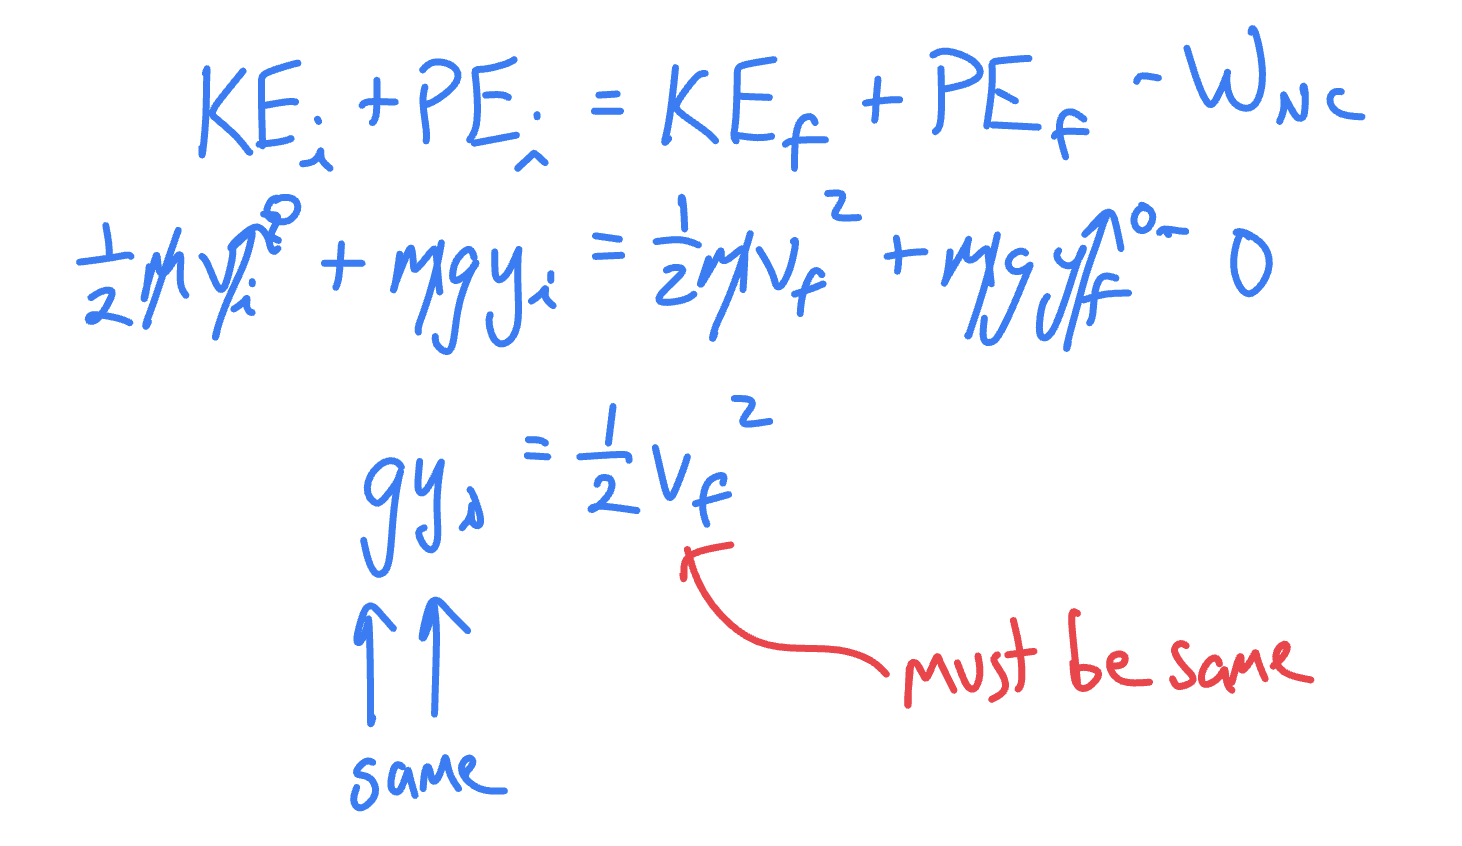 KE_i + PE_i = KE_f + PE_f - W_NC
1/2 m v_i^2 0 + m g y_i = 1/2 m v_f^2 + m g y_f 0 - 0
g y_i = 1/2 v_f^2
must be same
same